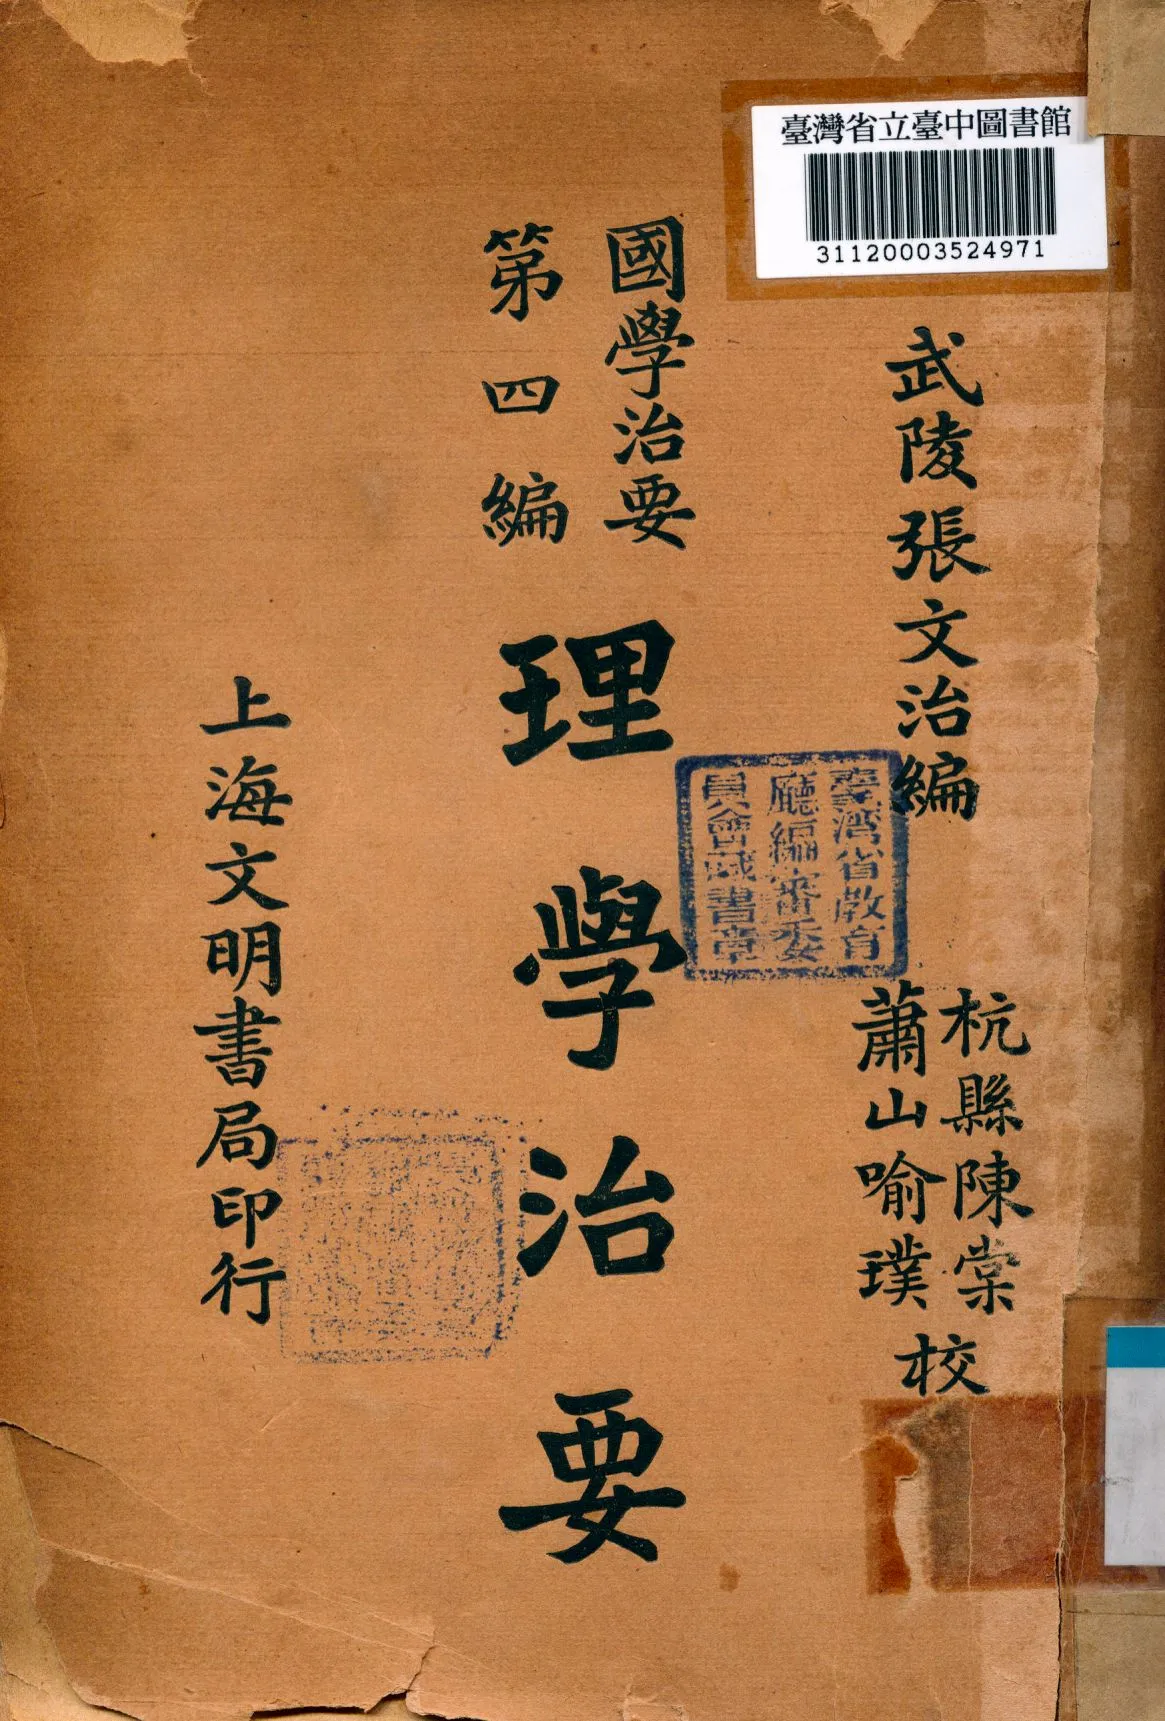 臺灣省立臺中圖書館
31120003524971
武陵張文治編
杭縣陳棠
蕭山喻璞
校
國學治要
第四編
理學治要
上海文明書局印行
臺灣省教育
廳編審委
員會藏書章